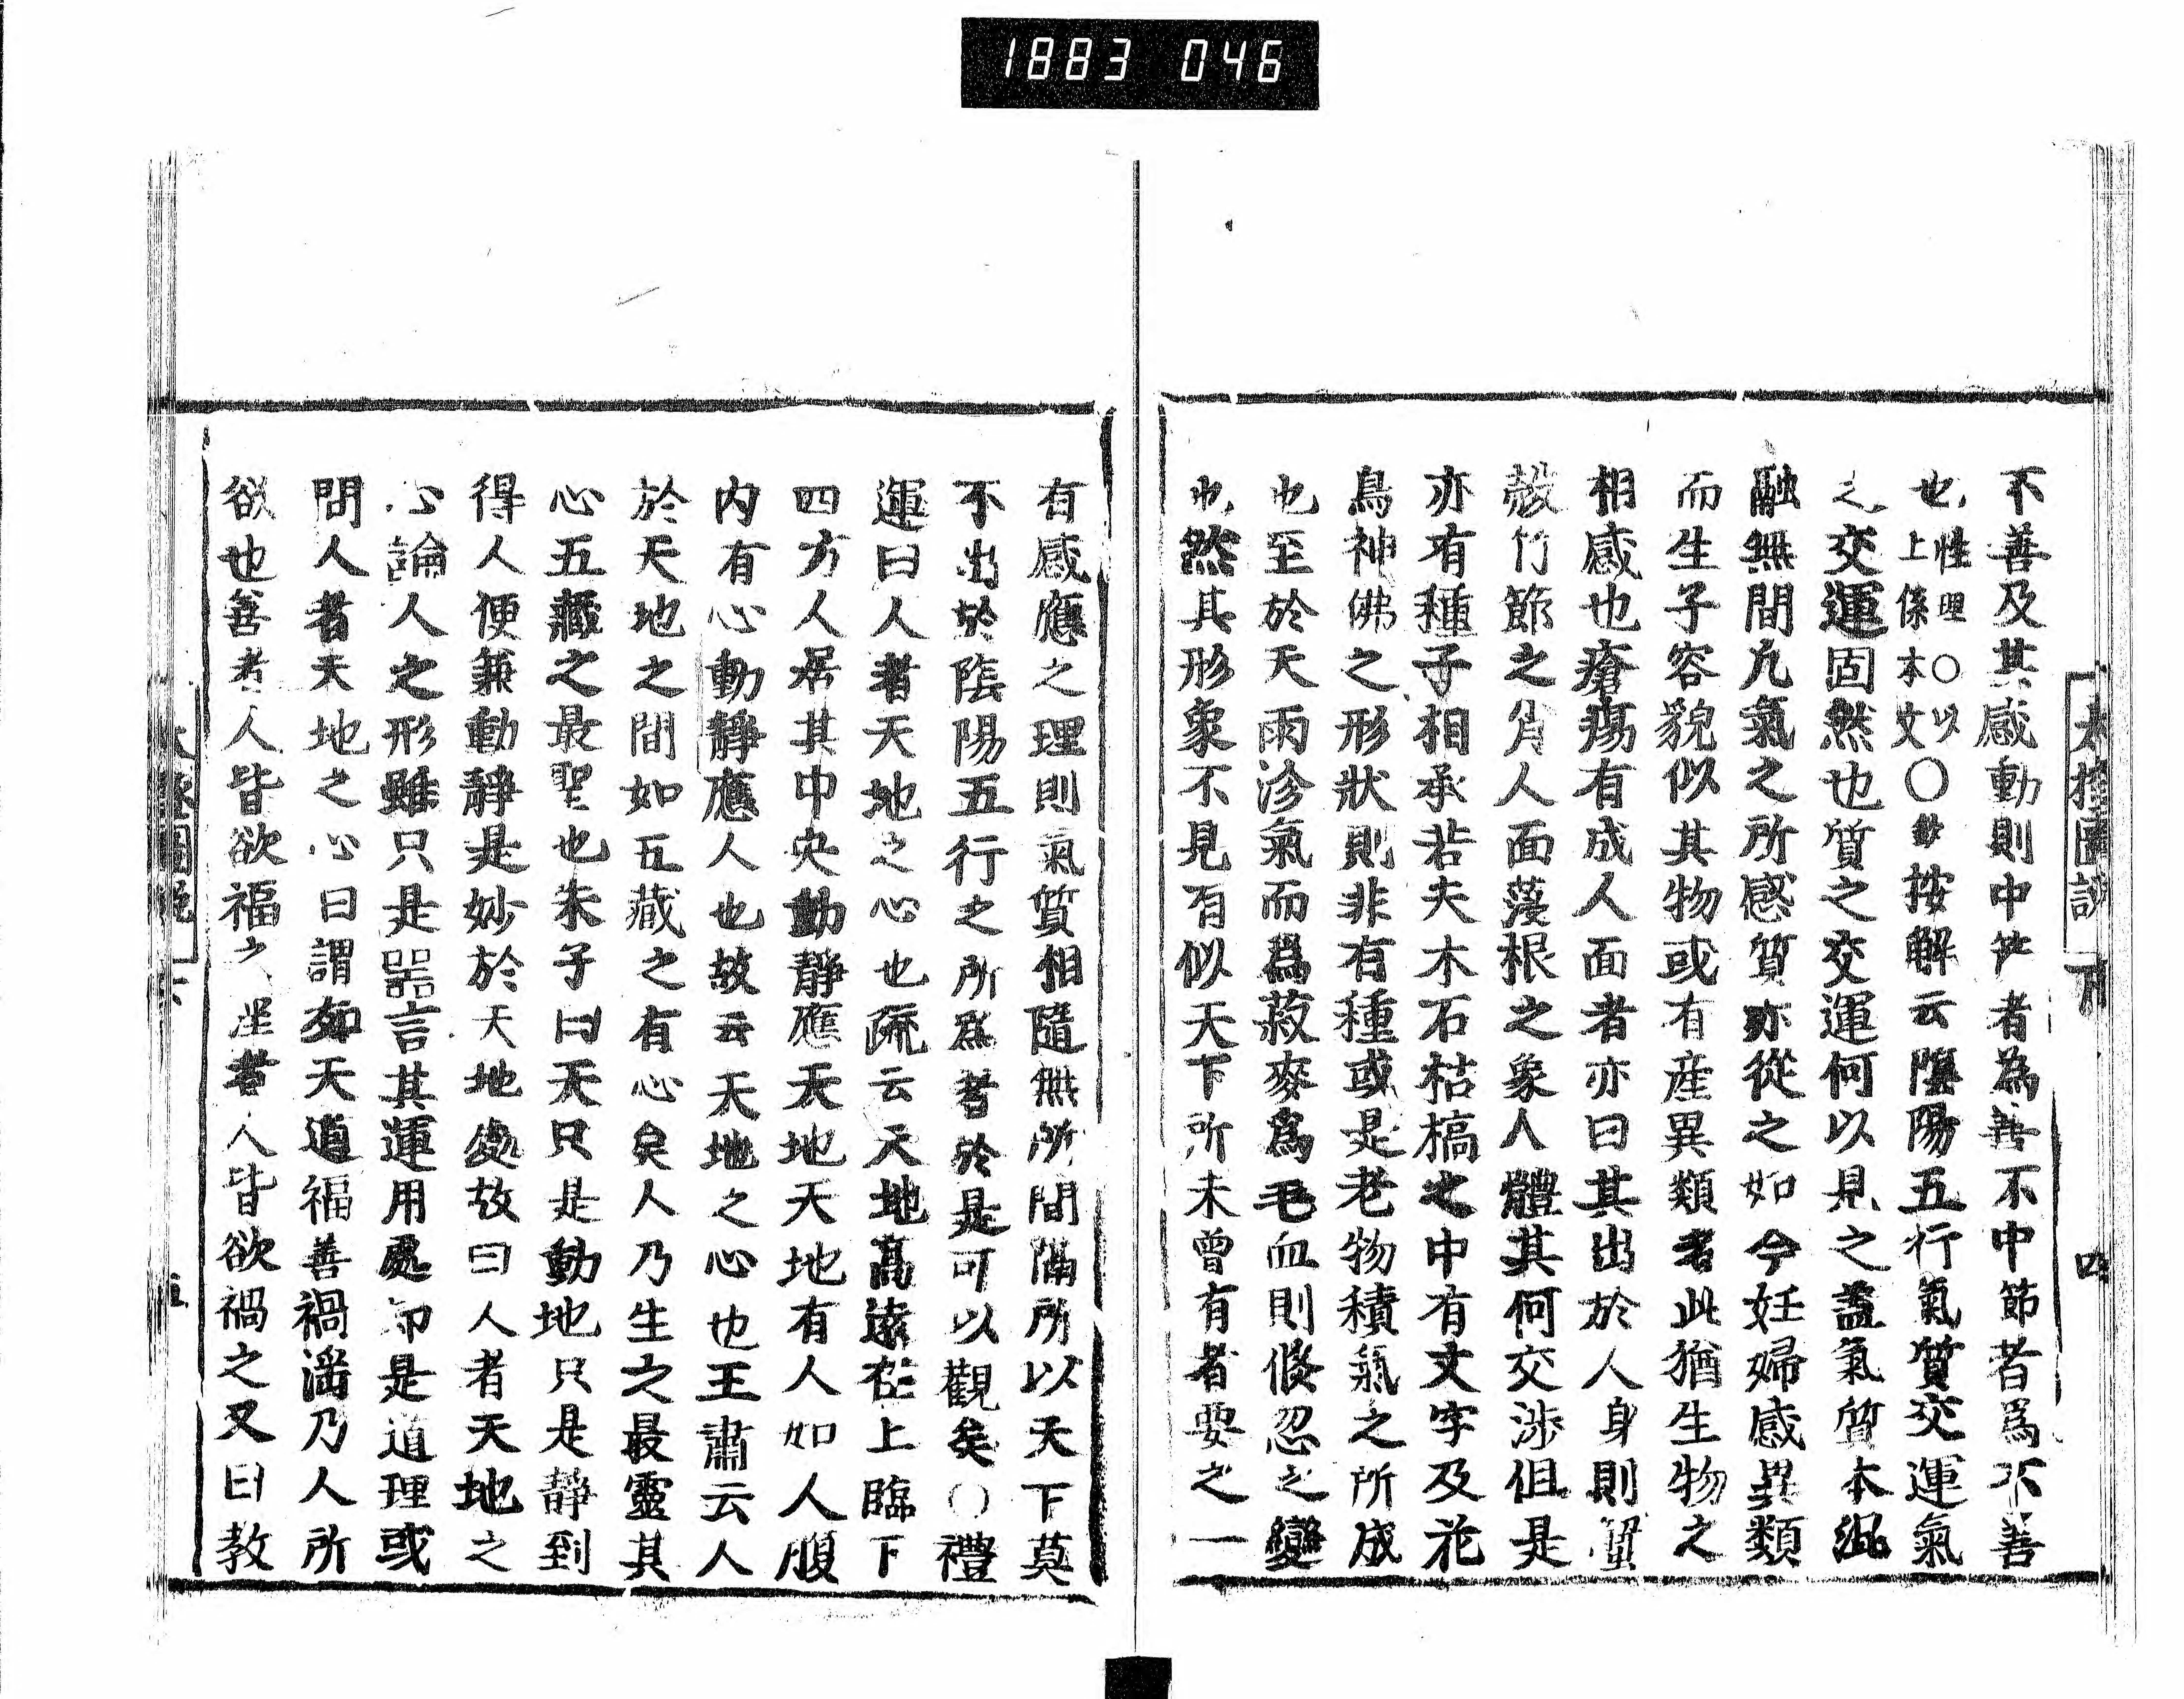 1883 046
太極圖說 下 四
不善及其感動則中節者為善不中節者爲不善
也性理○以上係本文○鈔按解云陰陽五行氣質交運氣
之交運固然也質之交運何以見之蓋氣質本混
融無間凢氣之所感質亦從之如今妊婦感異類
而生子容貌似其物或有産異類者此猶生物之
相感也瘡瘍有成人面者亦曰其出於人身則
竹節之 人面蔆根之象人體其何交涉但是
亦有種子相承若夫木石枯槁之中有文字及花
鳥神佛之形狀則非有種或是老物積氣之所成
也至於天雨沴氣而爲菽麥爲毛血則倏忽之變
也然其形象不見有似天下所未曾有者要之一
有感應之理則氣質相隨無所間隔所以天下莫
不出於陰陽五行之所爲者於是可以觀矣○禮
運曰人者天地之心也疏云天地高遠在上臨下
四方人居其中央動靜應天地天地有人如人腹
内有心動靜應人也故云天地之心也王肅云人
於天地之間如五藏之有心矣人乃生之最靈其
心五藏之最聖也朱子曰天只是動地只是靜到
得人便兼動靜是妙於天地處故曰人者天地之
心論人之形雖只是器言其運用處却是道理或
問人者天地之心曰謂如天道福善禍淫乃人所
欲也善者人皆欲福之淫者人皆欲禍之又曰教
太極圖說 下 五